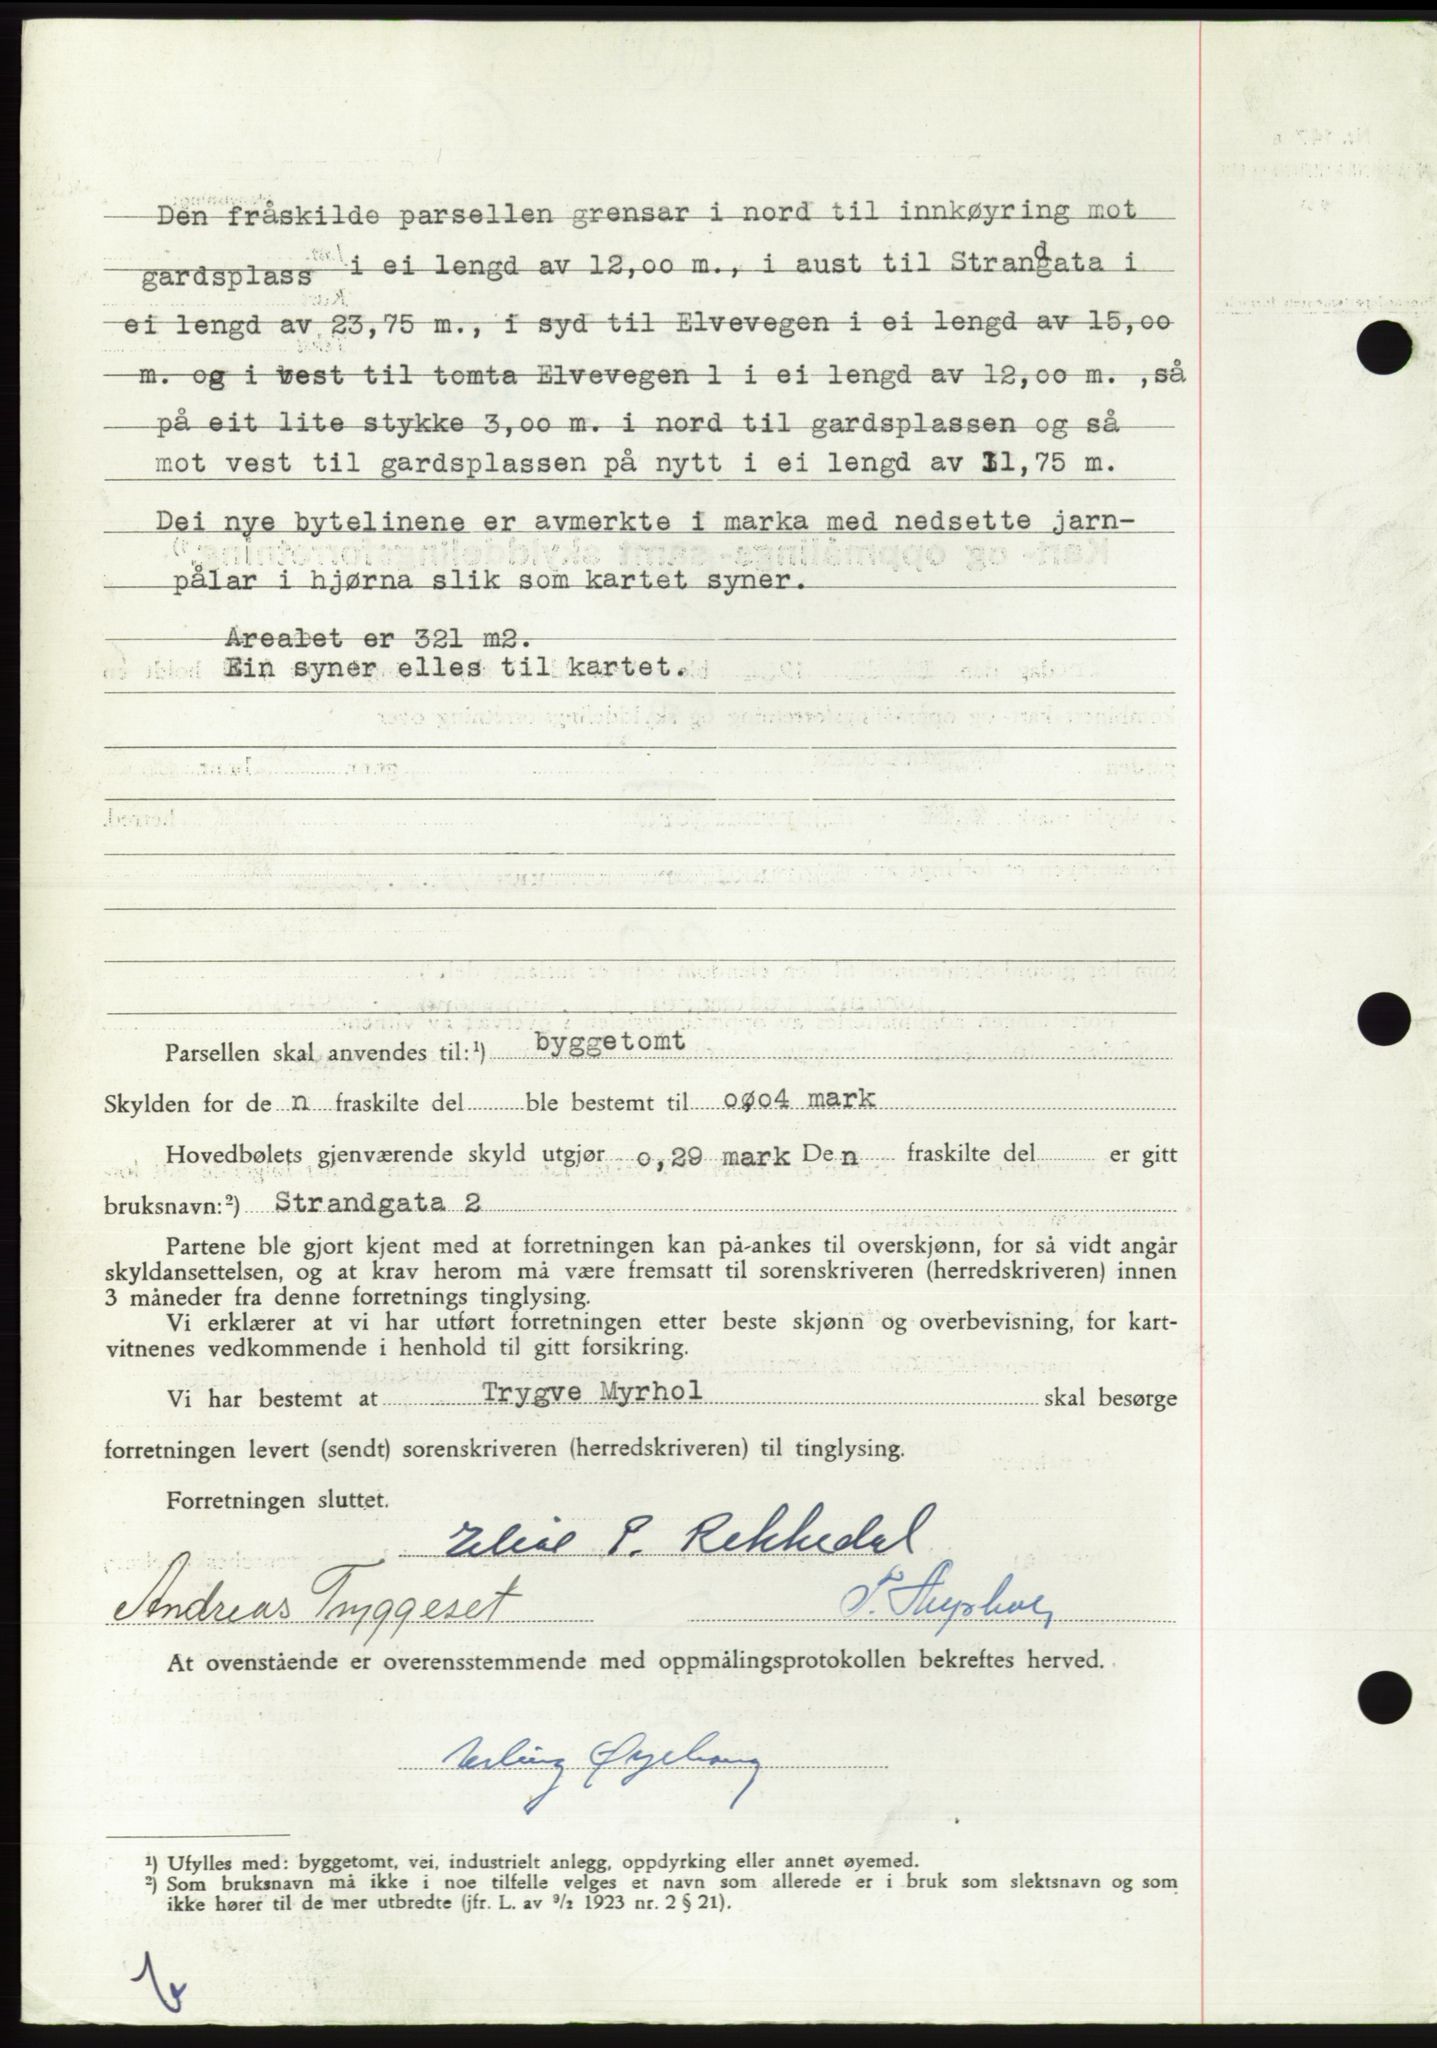 Den fråskilde parsellen grensar i nord til innkøyring mot
gardsplass i ei lengd av 12,oo m., i aust til Strandgata i
ei lengd av 23,75 m., i syd til Elvevegen i ei lengd av 15,oo
m. og i vest til tomta Elvevegen 1 i ei lengd av 12,oo m. ,så
på eit lite stykke 3,oo m. i nord til gardsplassen og så
mot vest til gardsplassen på nytt i ei lengd av 11,75 m.
Dei nye bytelinene er avmerkte i marka med nedsette jarn-
pålar i hjørna slik som kartet syner.
Arealet er 321 m2.
Ein syner elles til kartet.
Parsellen skal anvendes til:¹) byggetomt
Skylden for de n fraskilte del ble bestemt til oøo4 mark
Hovedbølets gjenværende skyld utgjør o,29 mark Den fraskilte del er gitt
bruksnavn:²) Strandgata 2
Partene ble gjort kjent med at forretningen kan på-ankes til overskjønn, for så vidt angår
skyldansettelsen, og at krav herom må være fremsatt til sorenskriveren (herredskriveren) innen
3 måneder fra denne forretnings tinglysing.
Vi erklærer at vi har utført forretningen etter beste skjønn og overbevisning, for kart-
vitnenes vedkommende i henhold til gitt forsikring.
Vi har bestemt at Trygve Myrhol skal besørge
forretningen levert (sendt) sorenskriveren (herredskriveren) til tinglysing.
Forretningen sluttet.
Elias P. Rekkedal
Andreas Tryggeset P.
At ovenstående er overensstemmende med oppmålingsprotokollen bekreftes herved.
Erling Øyehaug
¹) Ufylles med: byggetomt, vei, industrielt anlegg, oppdyrking eller annet øyemed.
²) Som bruksnavn må ikke i noe tilfelle velges et navn som allerede er i bruk som slektsnavn og som
ikke hører til de mer utbredte (jfr. L. av ⁹/₂ 1923 nr. 2 § 21).